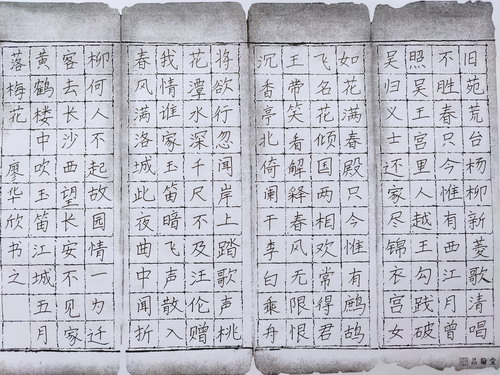 旧苑荒台杨柳新菱歌清唱
不胜春只今惟有西江月曾
照吴王宫里人越王勾践破
吴归义士还家尽锦衣宫女
如花满春殿只今惟有鹧鸪
飞名花倾国两相欢常得君
王带笑看解释春风无限恨
沉香亭北倚阑干李白乘舟
将欲行忽闻岸上踏歌声桃
花潭水深千尺不及汪伦赠
我情谁家玉笛暗飞声散入
春风满洛城此夜曲中闻折
柳何人不起故园情一为迁
客去长沙西望长安不见家
黄鹤楼中吹玉笛江城五月
落梅花 廖华欣书之
品翰堂